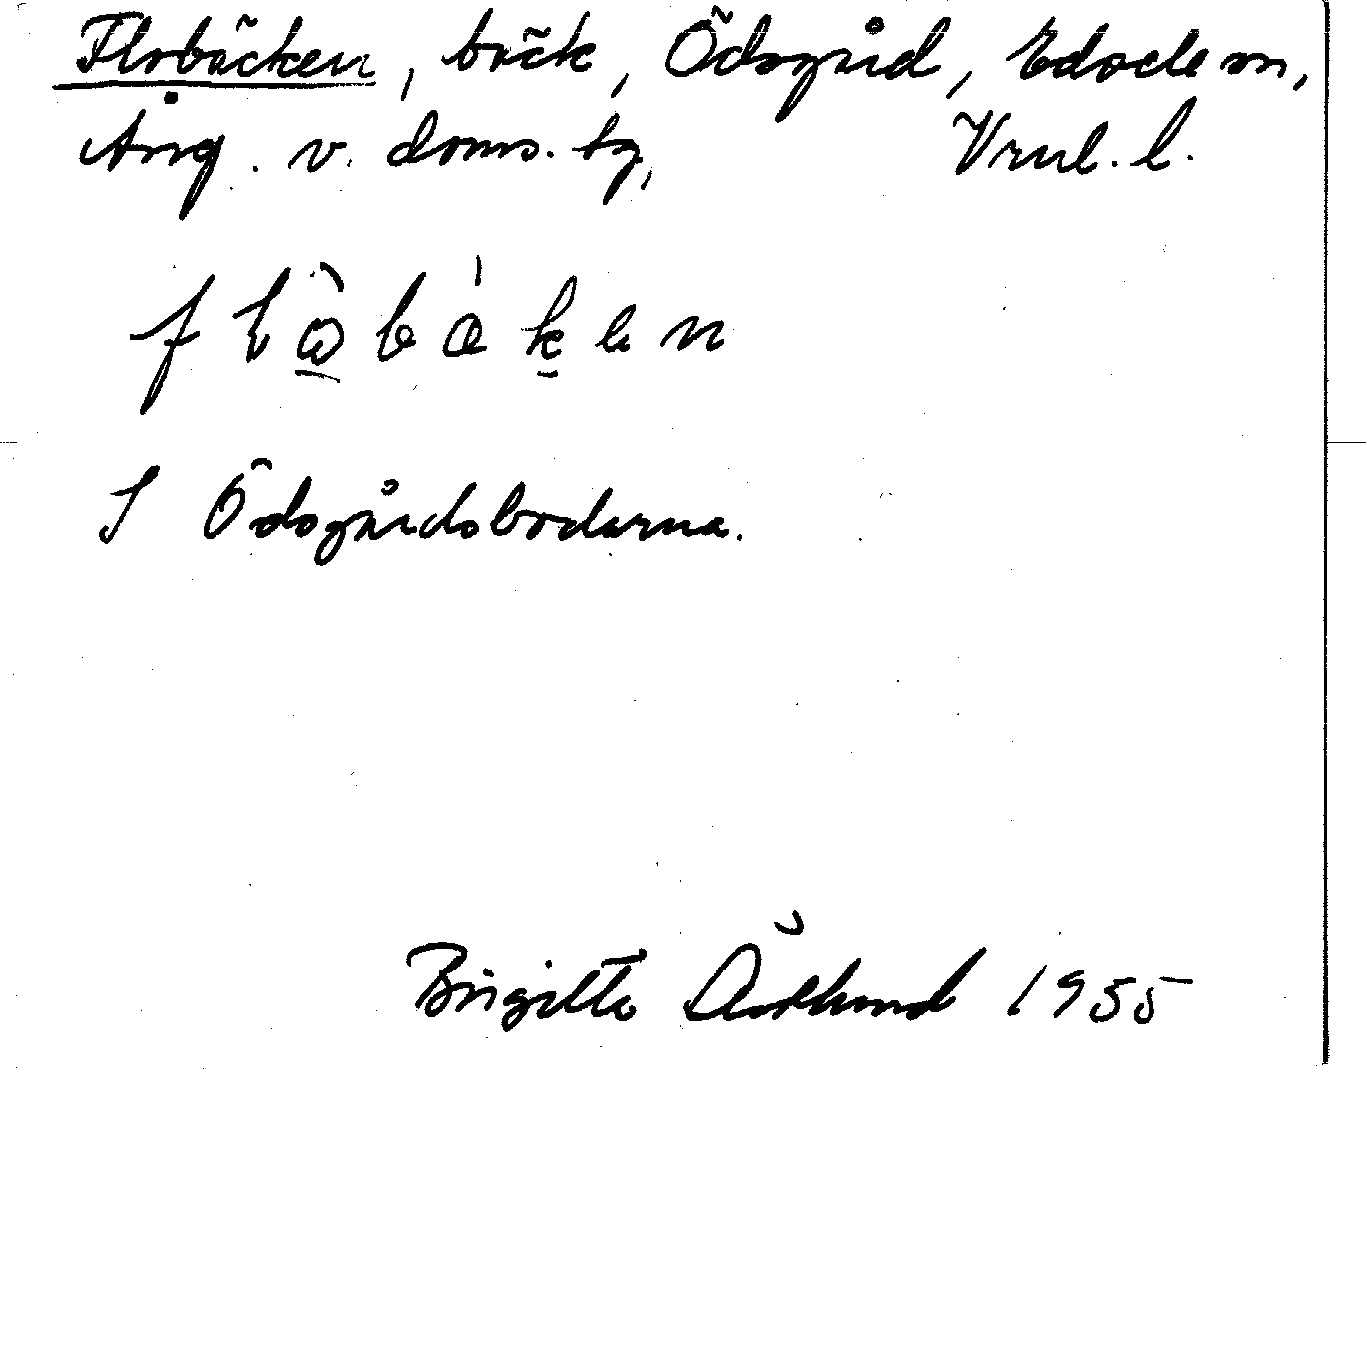 Flobäcken, bäck, Ödsgård, Edsele sn,
Ång. v. doms. tg, Vrml. l.
flôbàken
I Ödsgårdsbodarna.
Birgitta 1955